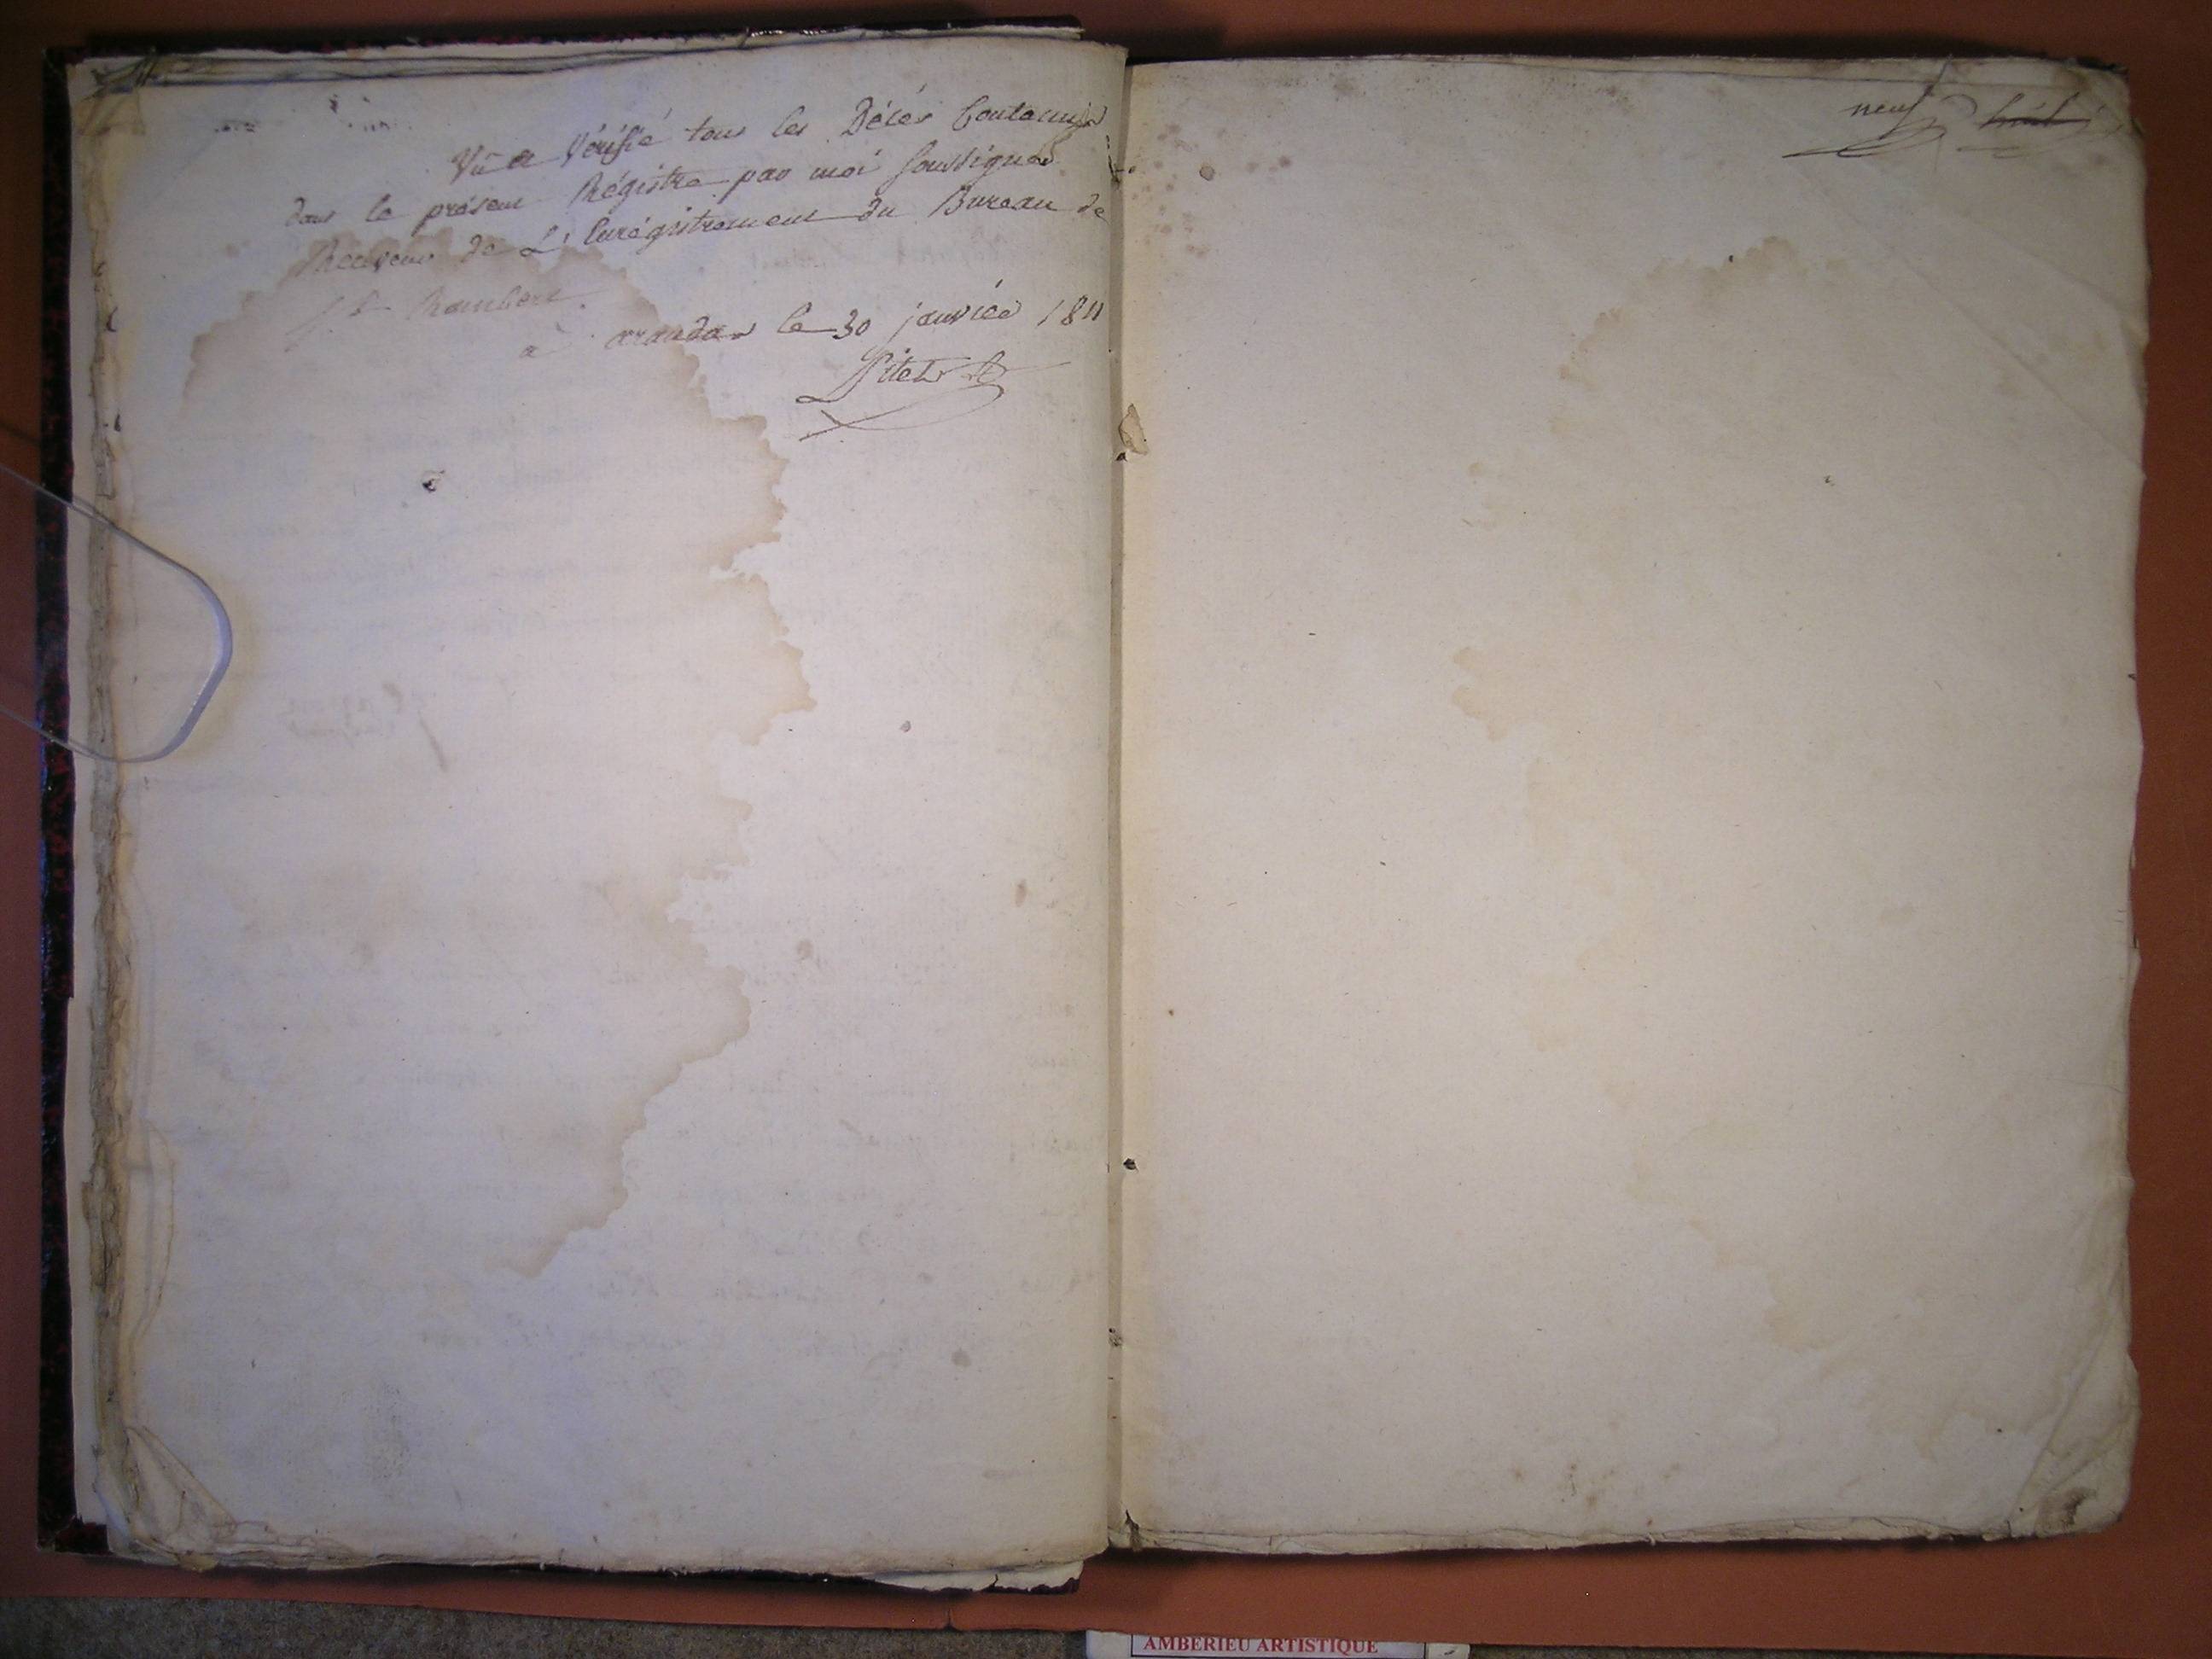 Vû et Vérifié tous les Décés Contenus
dans le présent Régistre par moi soussigné
Receveur de L'Enrégistrement du Bureau de
St Rambert.
à arandas le 30 janvier 1811
neuf huit
AMBERIEU ARTISTIQUE